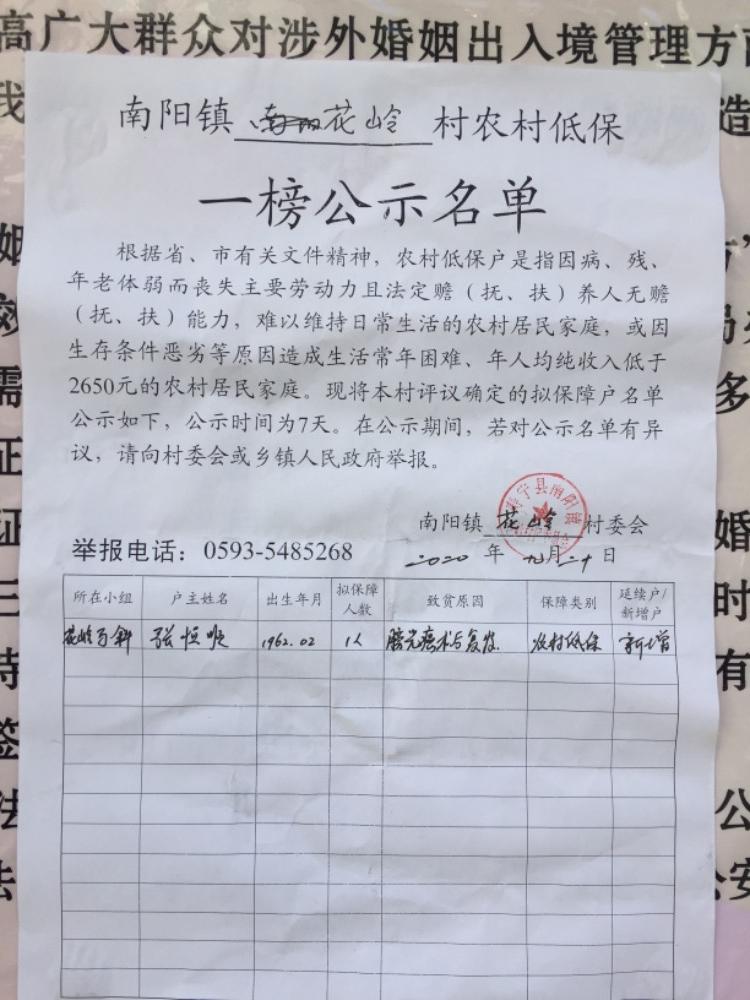 高广大群众对涉外婚姻出入境管理方
南阳镇 花岭 村农村低保
一榜公示名单
根据省、市有关文件精神，农村低保户是指因病、残、
年老体弱而丧失主要劳动力且法定赡（抚、扶）养人无赡
（抚、扶）能力，难以维持日常生活的农村居民家庭，或因
生存条件恶劣等原因造成生活常年困难、年人均纯收入低于
2650元的农村居民家庭。现将本村评议确定的拟保障户名单
公示如下，公示时间为7天。在公示期间，若对公示名单有异
议，请向村委会或乡镇人民政府举报。
南阳镇 花岭 村委会
举报电话：0593-5485268 2020 年 九月二十日
所在小组 户主姓名 出生年月 拟保障人数 致贫原因 保障类别 延续户/新增户
花岭 张恒顺 1962.02 1人 膀光癌术后复发 农村低保 新增